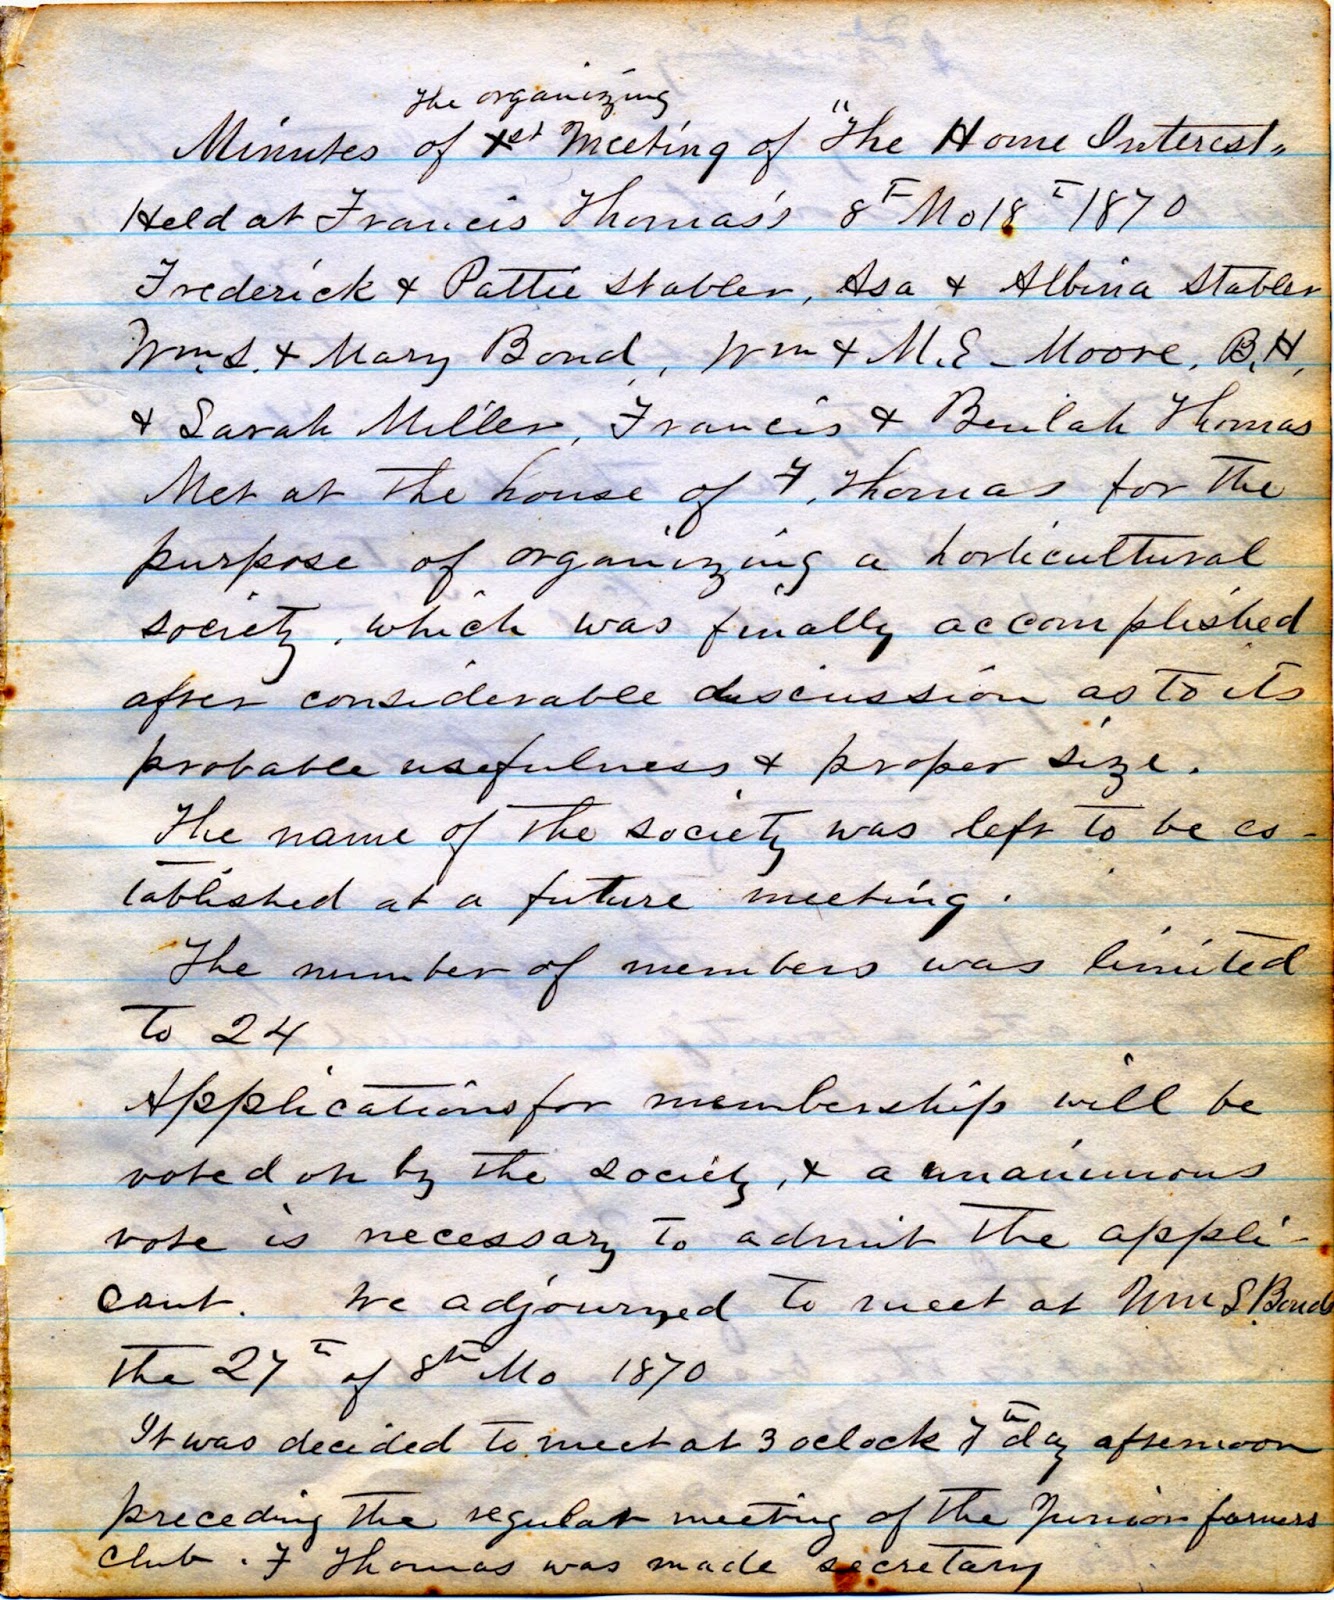 The organizing
Minutes of 1st Meeting of "The Home Interest"
Held at Francis Thomas's 8th Mo 18th 1870
Frederick & Pattie Stabler, Asa & Albina Stabler
Wm. S. & Mary Bond, Wm & M. E. Moore, B. H.
& Sarah Miller, Francis & Beulah Thomas
Met at the house of F. Thomas for the
purpose of organizing a horticultural
society, which was finally accomplished
after considerable discussion as to its
probable usefulness & proper size.
The name of the society was left to be es-
tablished at a future meeting.
The number of members was limited
to 24
Applications for membership will be
voted on by the society, & a unanimous
vote is necessary to admit the appli-
cant. We adjourned to meet at Wm S. Bonds
the 27th of 8th Mo 1870
It was decided to meet at 3 oclock 7th day afternoon
preceding the regular meeting of the Junior farmers
club. F Thomas was made secretary